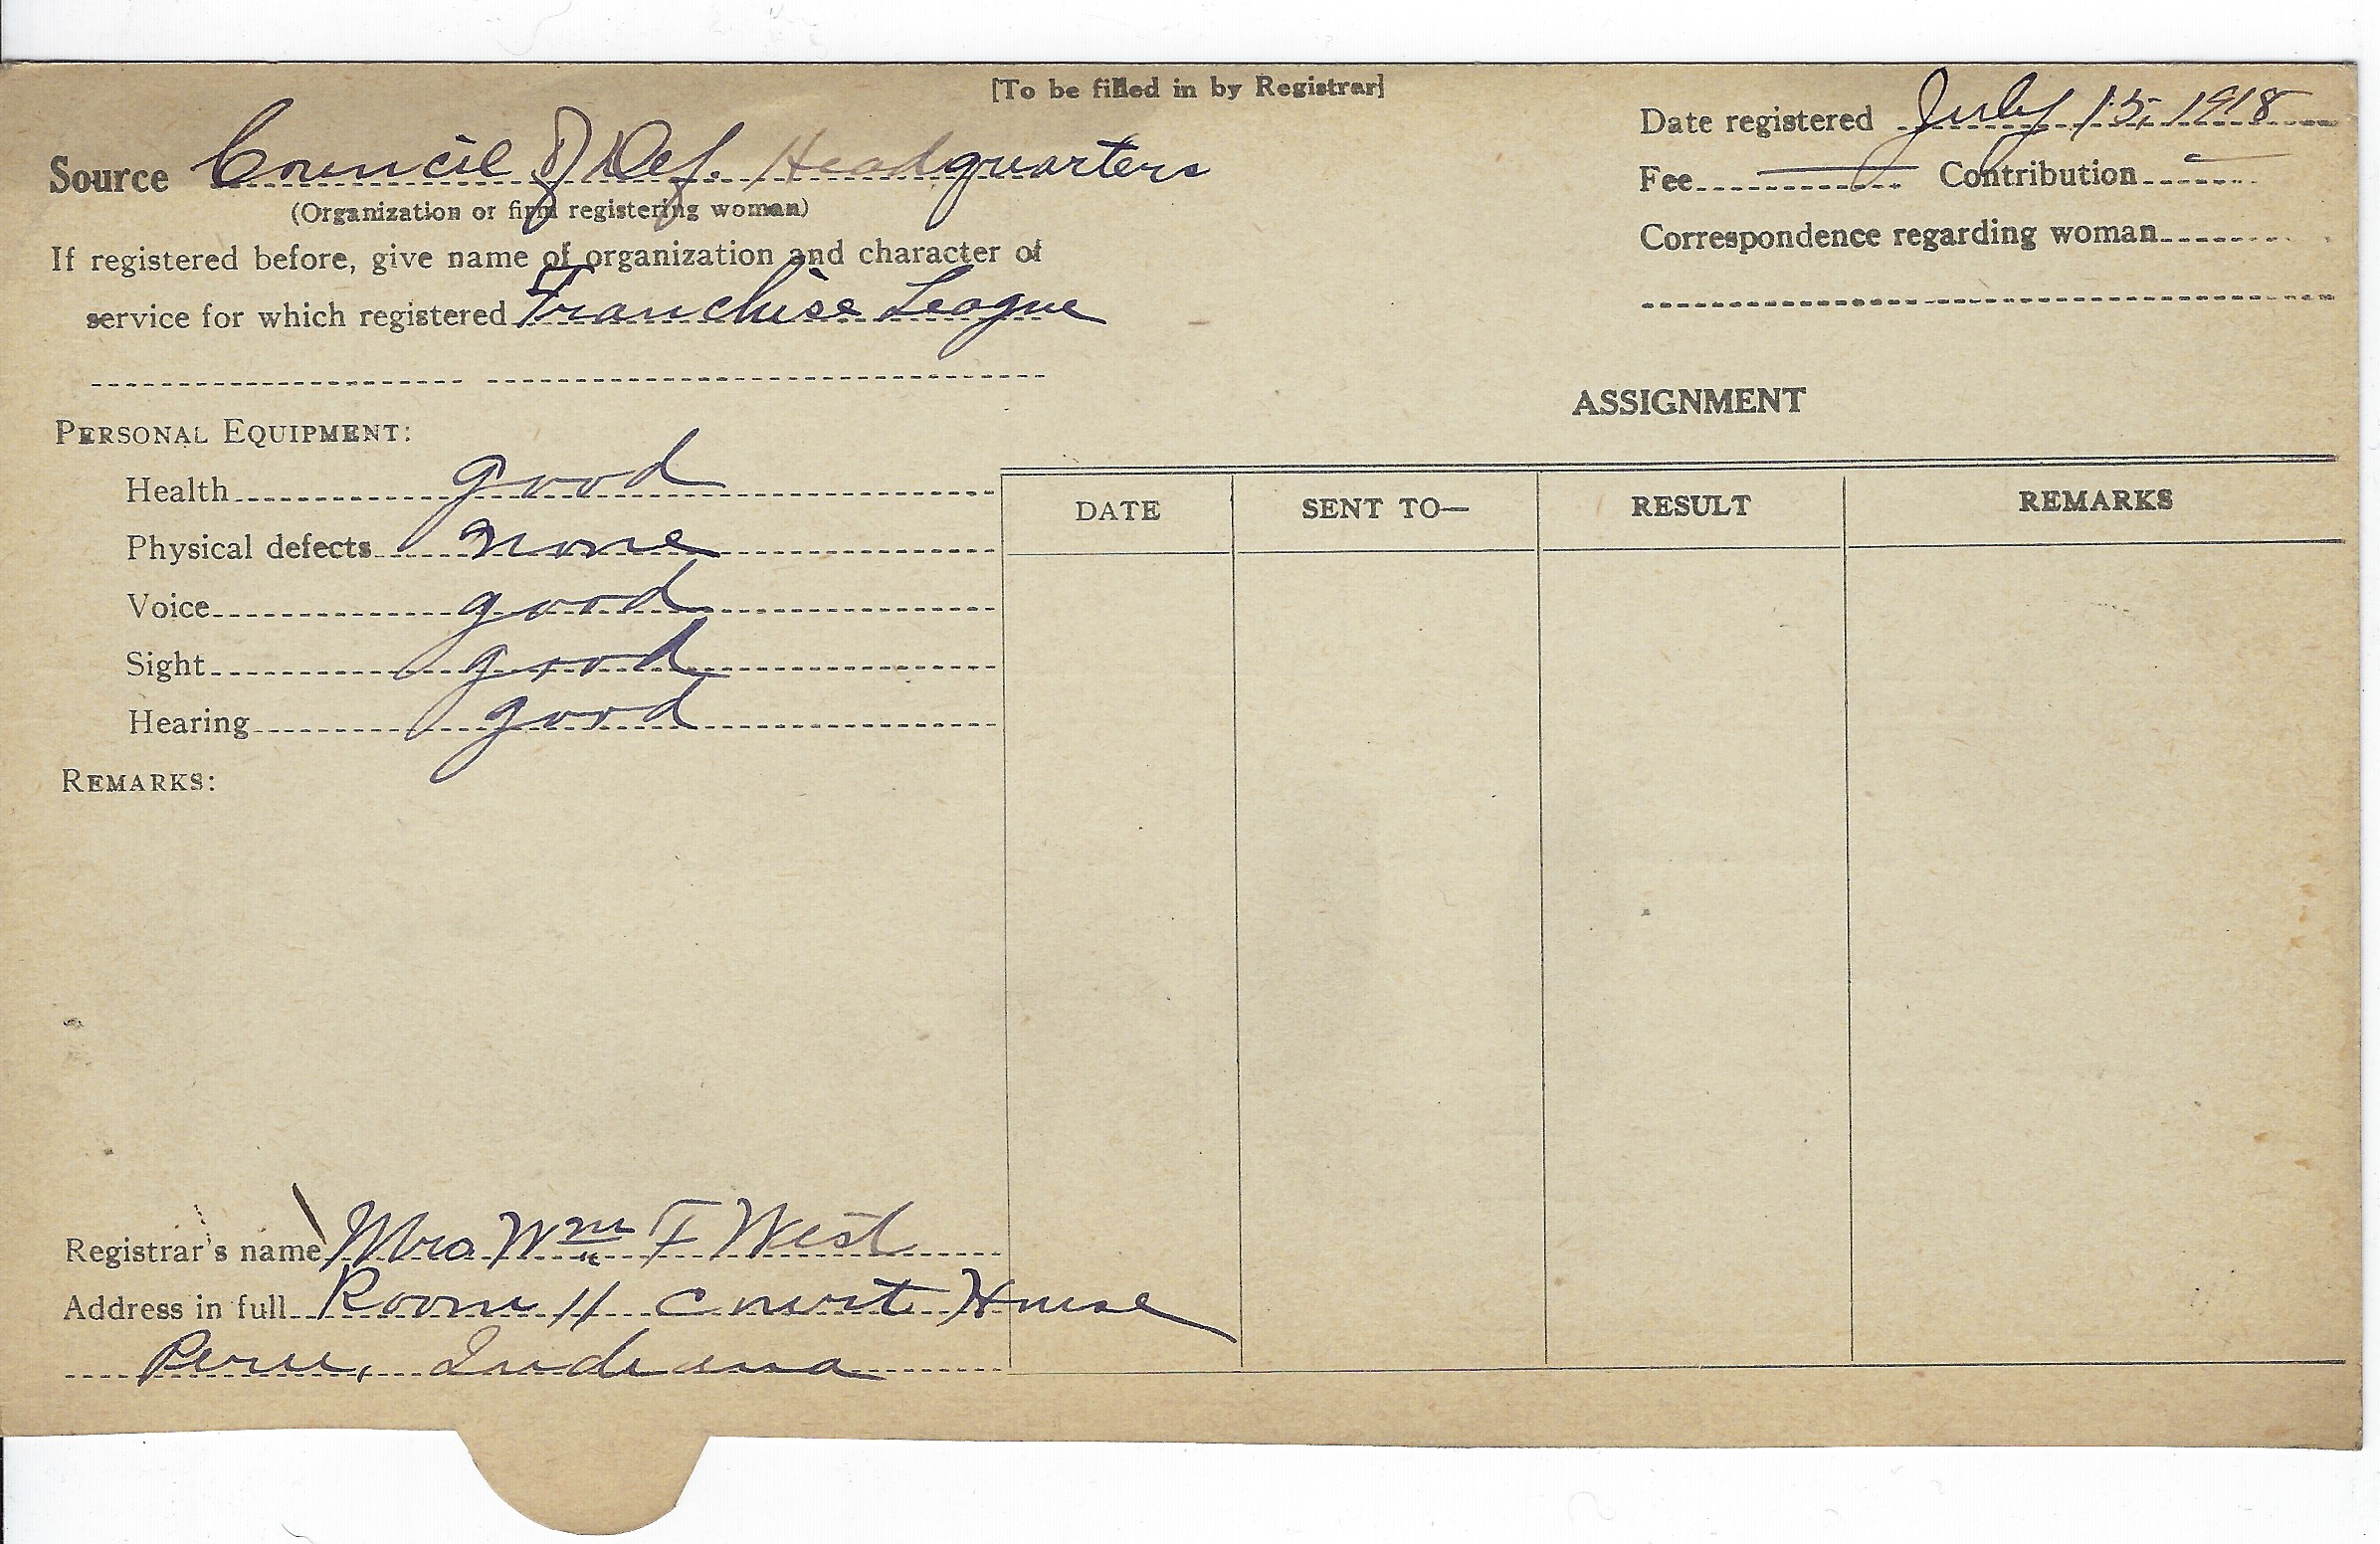 [To be filled in by Registrar]
Source Council of Def. Headquarters
(Organization or firm registering woman)
If registered before, give name of organization and character of
service for which registered Franchise League
Date registered July 15, 1918
Fee — Contribution —
Correspondence regarding woman
PERSONAL EQUIPMENT:
Health good
Physical defects none
Voice good
Sight good
Hearing good
REMARKS:
ASSIGNMENT
DATE SENT TO— RESULT REMARKS
Registrar's name Mrs Wm F West
Address in full Room 11 Court House
Peru, Indiana